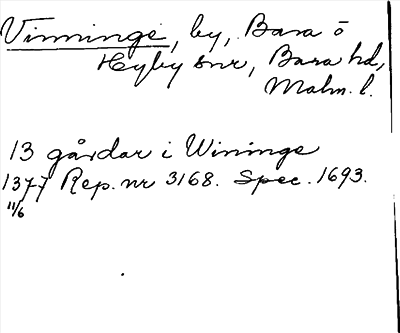 Vinninge, by, Bara ö
Hyby snr, Bara hd,
Malm. l.
13 gårdar i Wininge
1377 Rep. nr 3168. Spec. 1693.
11/6